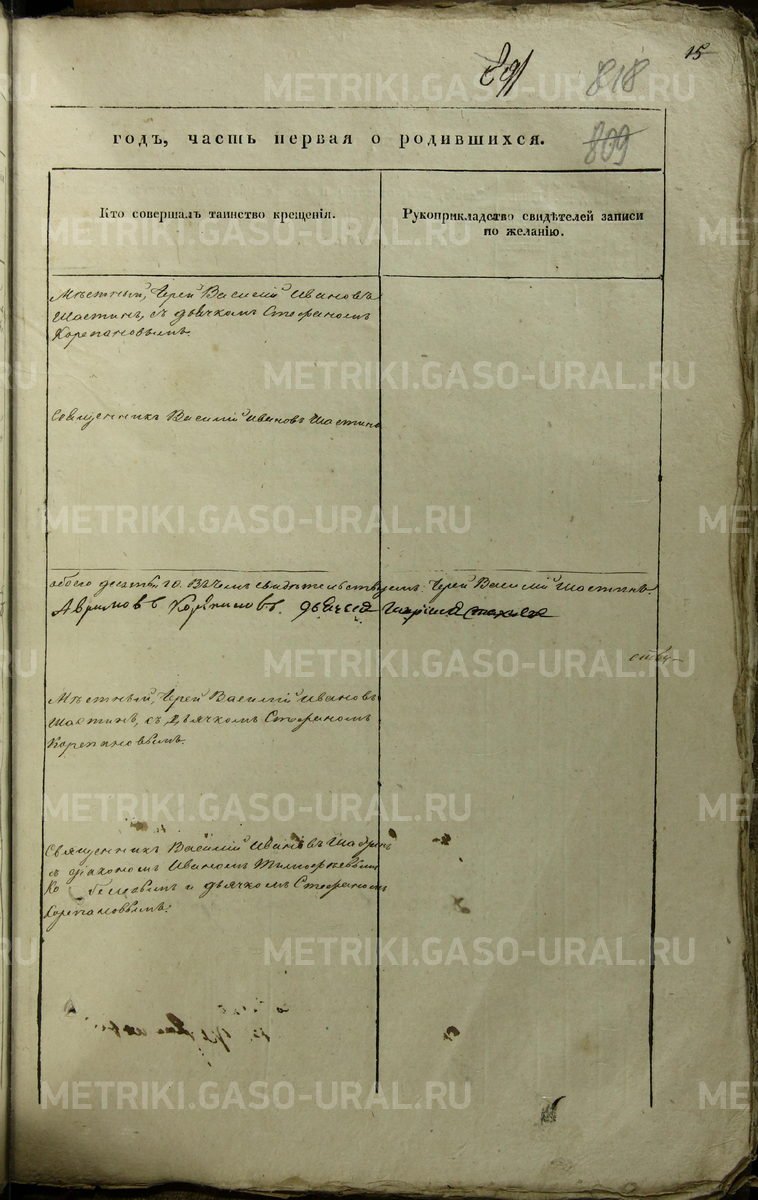 15
818
809
годъ, часть первая о родившихся.
Кто совершалъ таинство крещенія.
Рукоприкладство свидѣтелей записи
по желанію.
Мѣстный, Іерей Василій Ивановъ
Шастинъ, съ дьячкомъ Стефаномъ
Корепановымъ.
Священникъ Василій Ивановъ Шастинъ
обоего десять 10. Въ чемъ свидѣтельствуемъ: Іерей Василій Шастинъ.
Мѣстный, Іерей Василій Ивановъ
Шастинъ, съ Дьячкомъ Стефаномъ
Корепановымъ.
Священникъ Василій Ивановъ
съ діакономъ Иваномъ
и дьячкомъ Стефаномъ
Корепановымъ.
METRIKI.GASO-URAL.RU